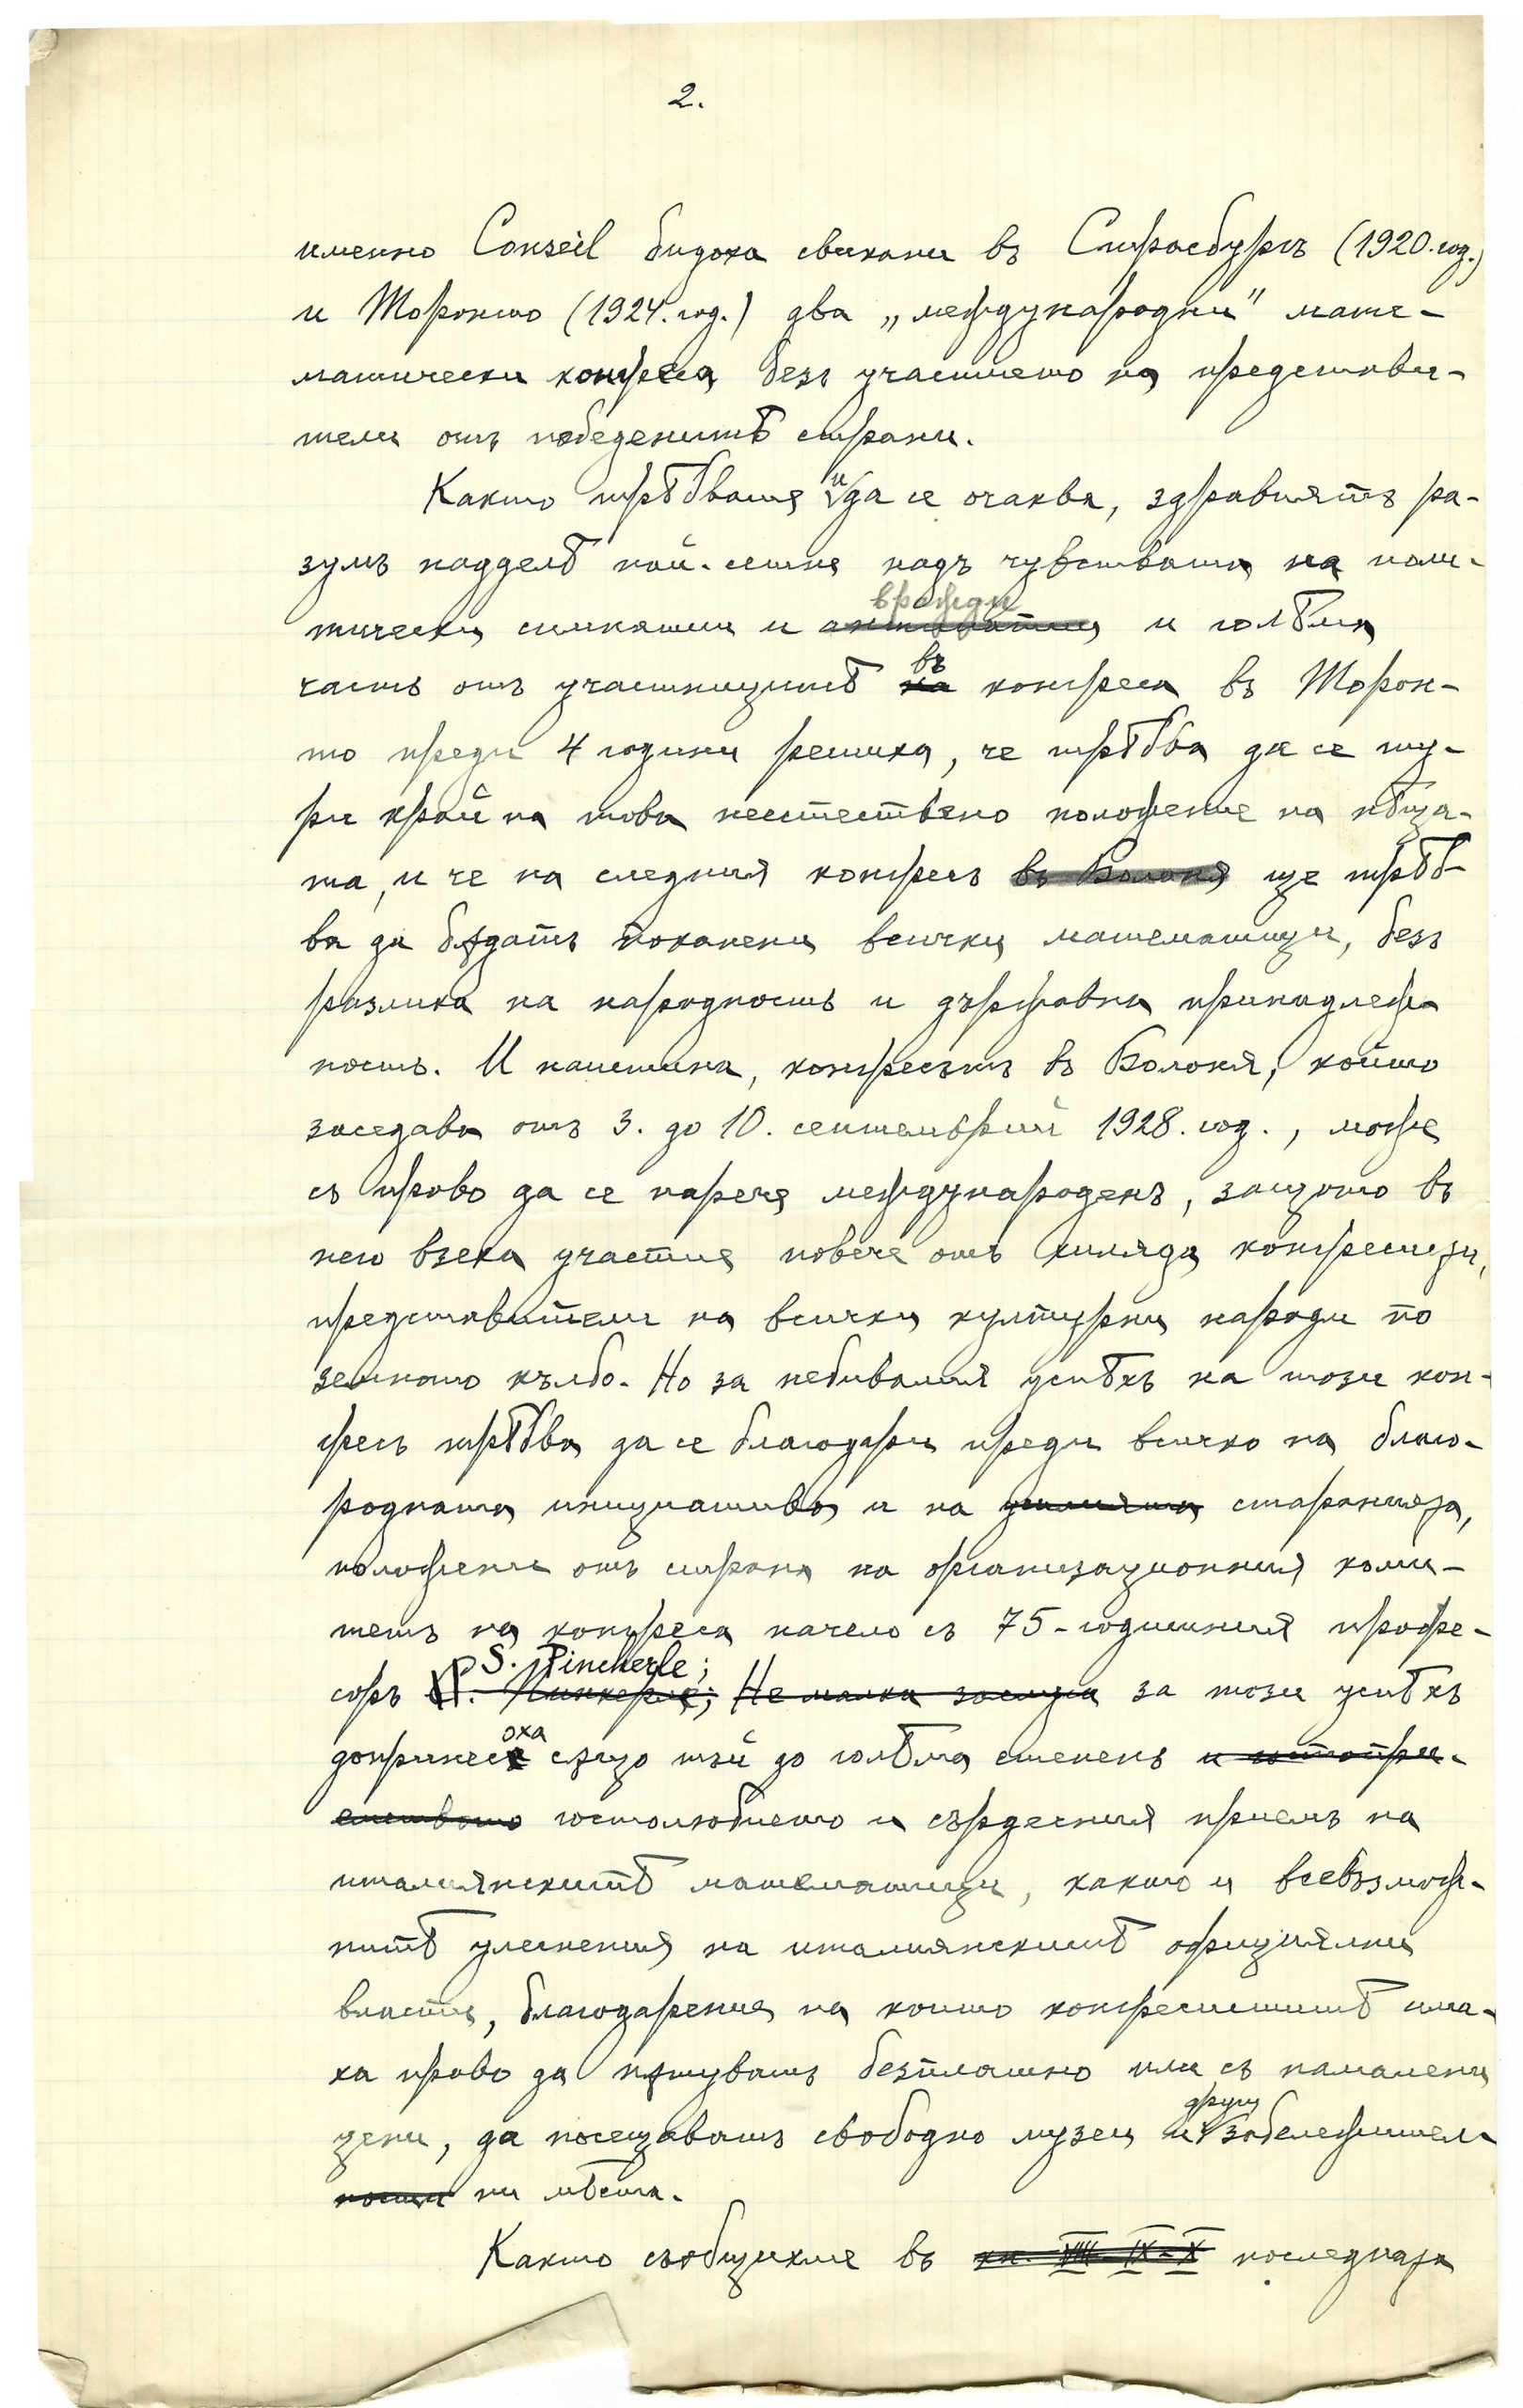 2.
именно Conseil бидоха свикани въ Страсбургъ (1920.год.)
и Торонто (1924.год.) два „международни" мате-
матически конгреса безъ участието на представи-
тели отъ победенитѣ страни.
Както трѣбваше и да се очаква, здравиятъ ра-
зумъ надделѣ най-сетне надъ чувствата на поли-
вражди
тически симпатии и антипатии и голѣма
въ
часть отъ участницитѣ на конгреса въ Торон-
то преди 4 години решиха, че трѣбва да се ту-
ри край на това неестествено положение на нѣща-
та, и че на следния конгресъ въ Болоня ще трѣб-
ва да бѫдатъ поканени всички математици, безъ
разлика на народность и държавна принадлеж-
ность. И наистина, конгресътъ въ Болоня, който
заседава отъ 3. до 10. септемврий 1928.год., може
съ право да се нарече международенъ, защото въ
него взеха участие повече отъ хиляда конгресисти,
представители на всички културни народи по
земното кълбо. Но за небивалия успѣхъ на този кон-
гресъ трѣбва да се благодари преди всичко на благо-
родната инициатива и на усилията старанията,
положени отъ страна на организационния коми-
тетъ на конгреса начело съ 75-годишния профе-
S. Pincherle;
соръ Пинкерле; Не малка заслуга за този успѣхъ
оха
допринес сѫщо тъй до голѣма степень и гостопри-
емството гостолюбието и сърдечния приемъ на
италиянскитѣ математици, както и всевъзмож-
нитѣ улеснения на италиянскитѣ официялни
власти, благодарение на които конгресиститѣ има-
ха право да пѫтуватъ безплатно или съ намалени
други
цени, да посещаватъ свободно музеи и забележител-
ности ни мѣста.
Както съобщихме въ кн. VIII IX-X последната